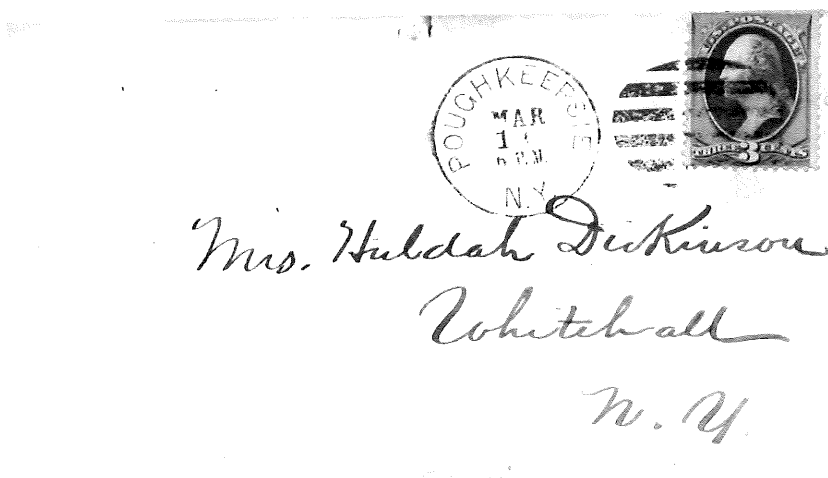 U.S. POSTAGE
THREE 3 CENTS
POUGHKEEPSIE
MAR
6 P.M.
N.Y.
Mrs. Huldah Dickinson
Whitehall
N. Y.